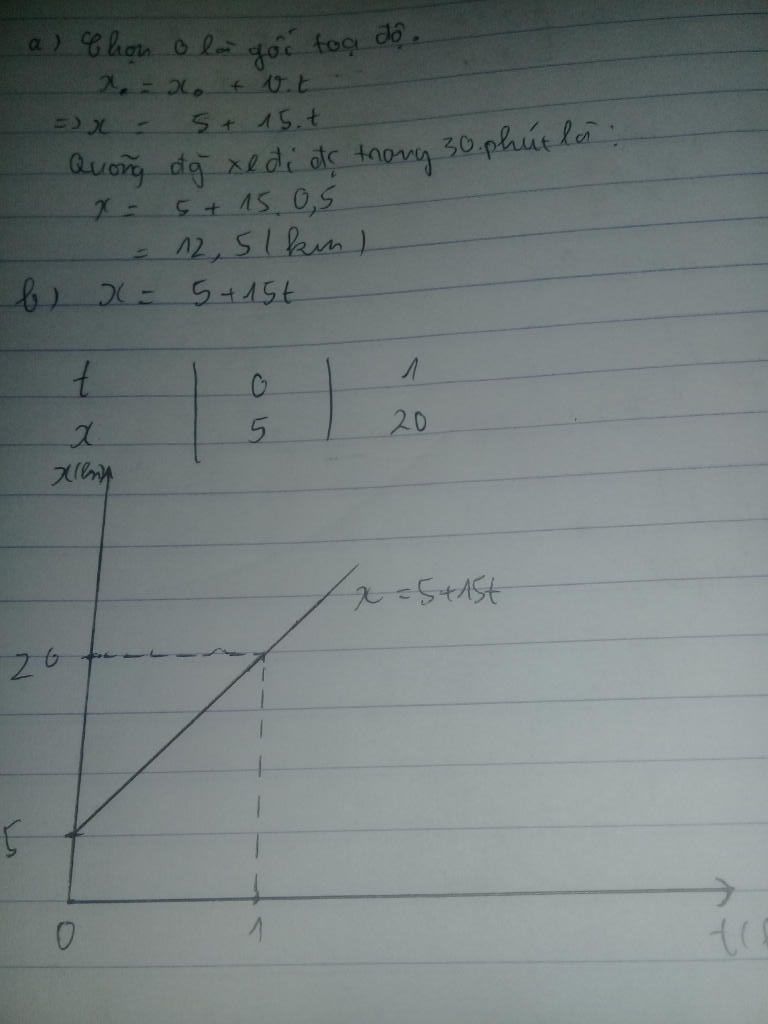 a) Chọn O là gốc toạ độ.
x. = x₀ + v.t
=> x = 5 + 15.t
Quãng đg xe đi đc trong 30 phút là:
x = 5 + 15. 0,5
= 12,5 (km)
b) x = 5 + 15t
t | 0 | 1
x | 5 | 20
x(km)
x = 5 + 15t
20
5
0 1
t(